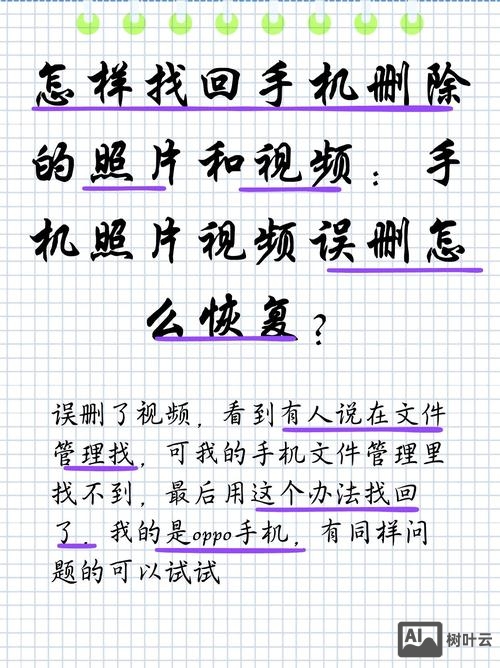 怎样找回手机删除
的照片和视频：手
机照片视频误删怎
么恢复？
误删了视频，看到有人说在文件
管理找，可我的手机文件管理里
找不到，最后用这个办法找回
了．我的是oppo手机，有同样问
题的可以试试
AI 树叶云